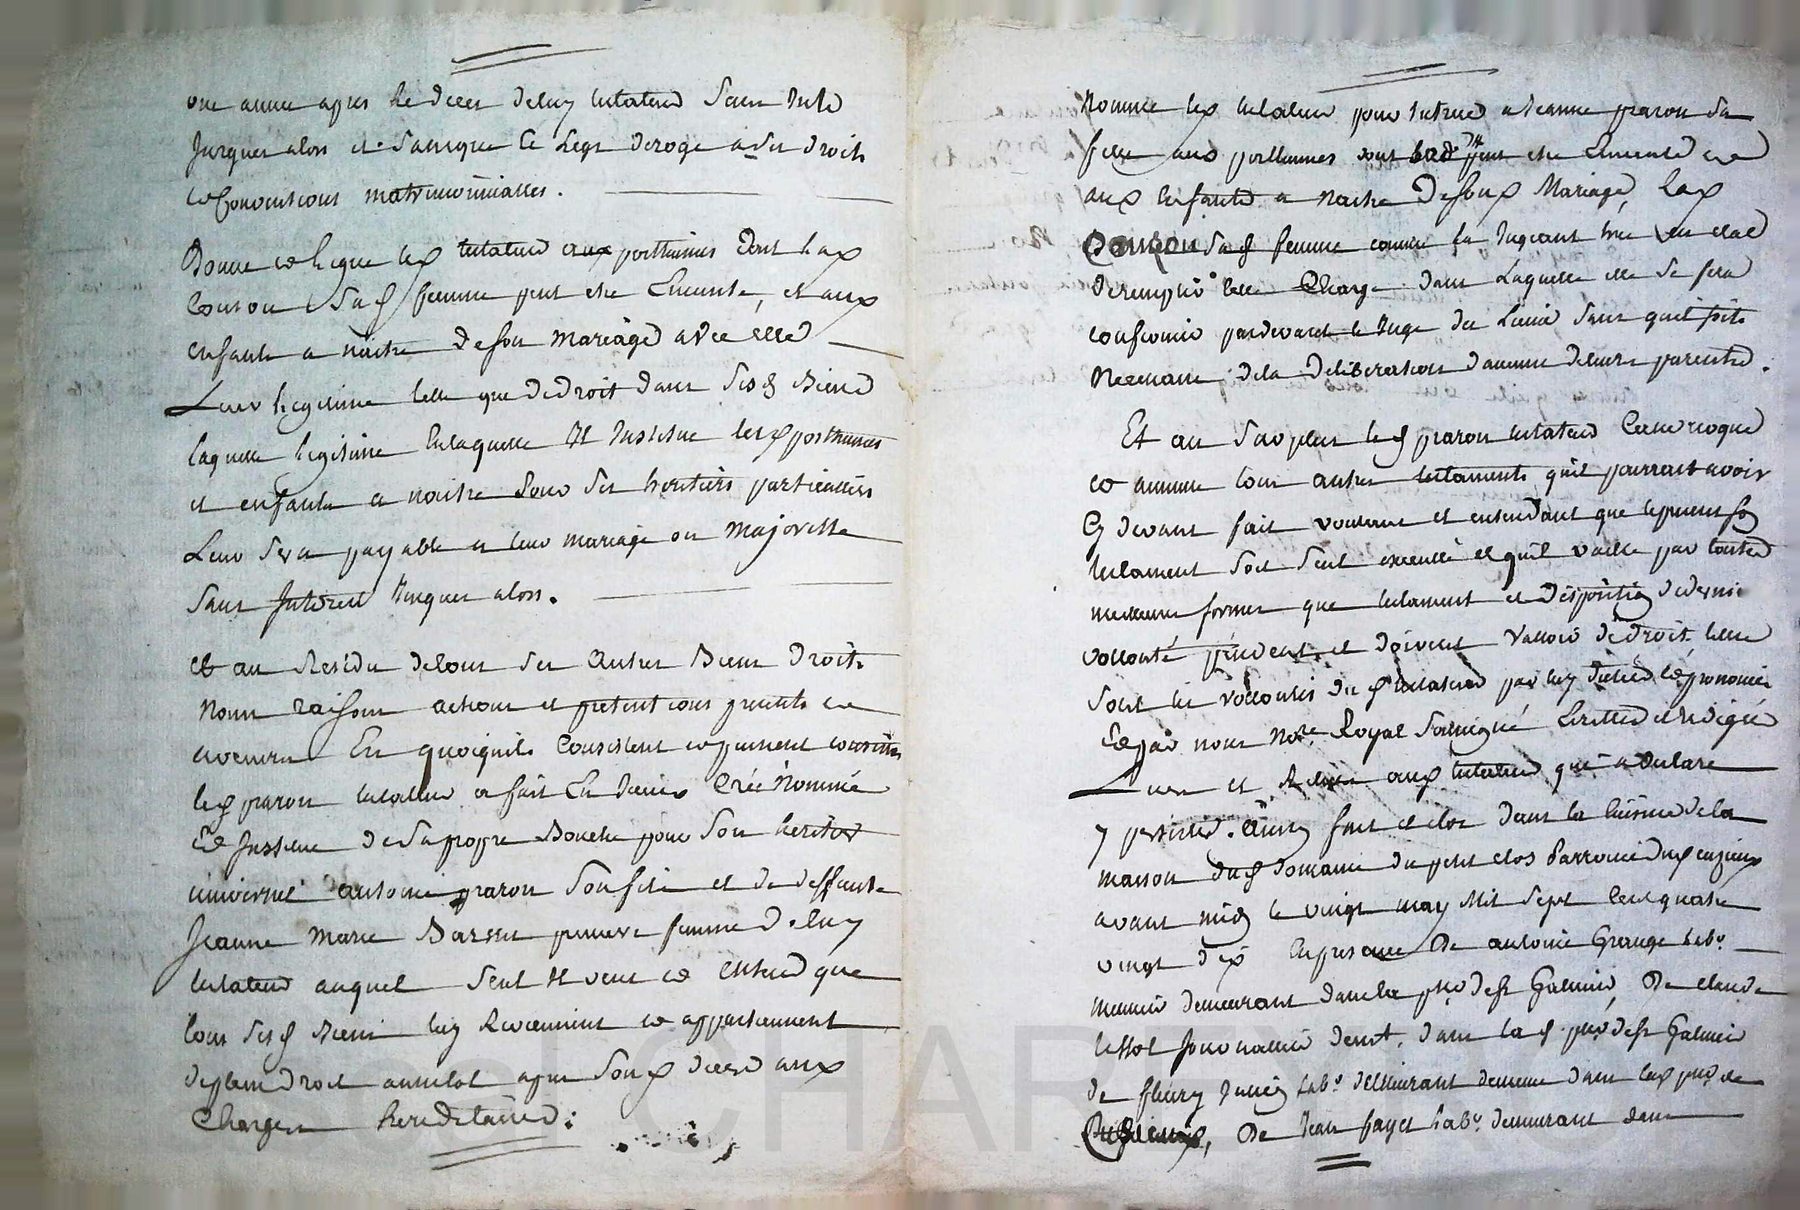 une annee apres le deces deluy testateur Sans Interet
Jusques alors et Sans que le Legs deroge a Ses droits
et Conventions matrimonialles.
Donne et legue led testateur aux posthumes dont lad
Sad femme peut etre Enceinte, et aux
enfants a naitre de son mariage avec elle
Leur legitime telle que de droit dans Sesd Biens
laquelle legitime En laquelle Il Institue lesd posthumes
et enfants a naitre pour Ses heritiers particuliers
Leur Sera payable a leur mariage ou majorité
Sans Interest Jusques alors.
et au Residu de tous Ses Autres Biens droits
Noms raisons actions et pretentions presents et
avenirs En quoiquils Consistent et puissent consister
led praron testateur a fait Et Nommé
Et Institue de Sa propre Bouche pour Son heritier
universel antoine praron Son fils et de deffunte
Jeanne Marie premiere femme deluy
testateur auquel Seul Il veut et Entend que
tous Sesd Biens luy Reviennent et appartiennent
de plein droit aussitot apres Sond deces aux
Charges hereditaires.
Nomme led testateur pour tutrice a Jeanne praron Sa
fille aux posthumes dont lad peut etre Enceinte et
aux Enfants a Naitre de Sond Mariage, Lad
Sad femme comme la Jugeant tres en etat
de remplir cette Charge dans Laquelle elle Se fera
confirmer pardevant le Juge des Lieux Sans quil soit
Necessaire de la deliberation daucuns de leurs parents.
Et au Surplus led praron testateur Casse revoque
et annulle tous autres testaments quil pourrait avoir
Cy devant fait voulant et entendant que le present Son
testament Soit Seul executé et quil vaille par toutes
meilleures formes que testament et disposition de derniere
volonté peuvent et doivent Valloir de droit telles
Sont les vollontés dud testateur par luy dictées et prononcées
Et par nous Nore Royal Soussigné Ecrittes et Redigées
Lues et Relues aud testateur qui a declaré
y persister. Ainsy fait et clos dans la cuisine de la
maison dud domaine du petit clos parroisse dud
avant midy le vingt may Mil Sept Cent quatre
vingt dix En presence De antoine Grange labr
demeurant dans la psse de St Galmier, De claude
journallier demt. dans lad psse de St Galmier
de fleury labr demeurant dans lad psse de
De Jean fayet labr demeurant dans
CHAREYR